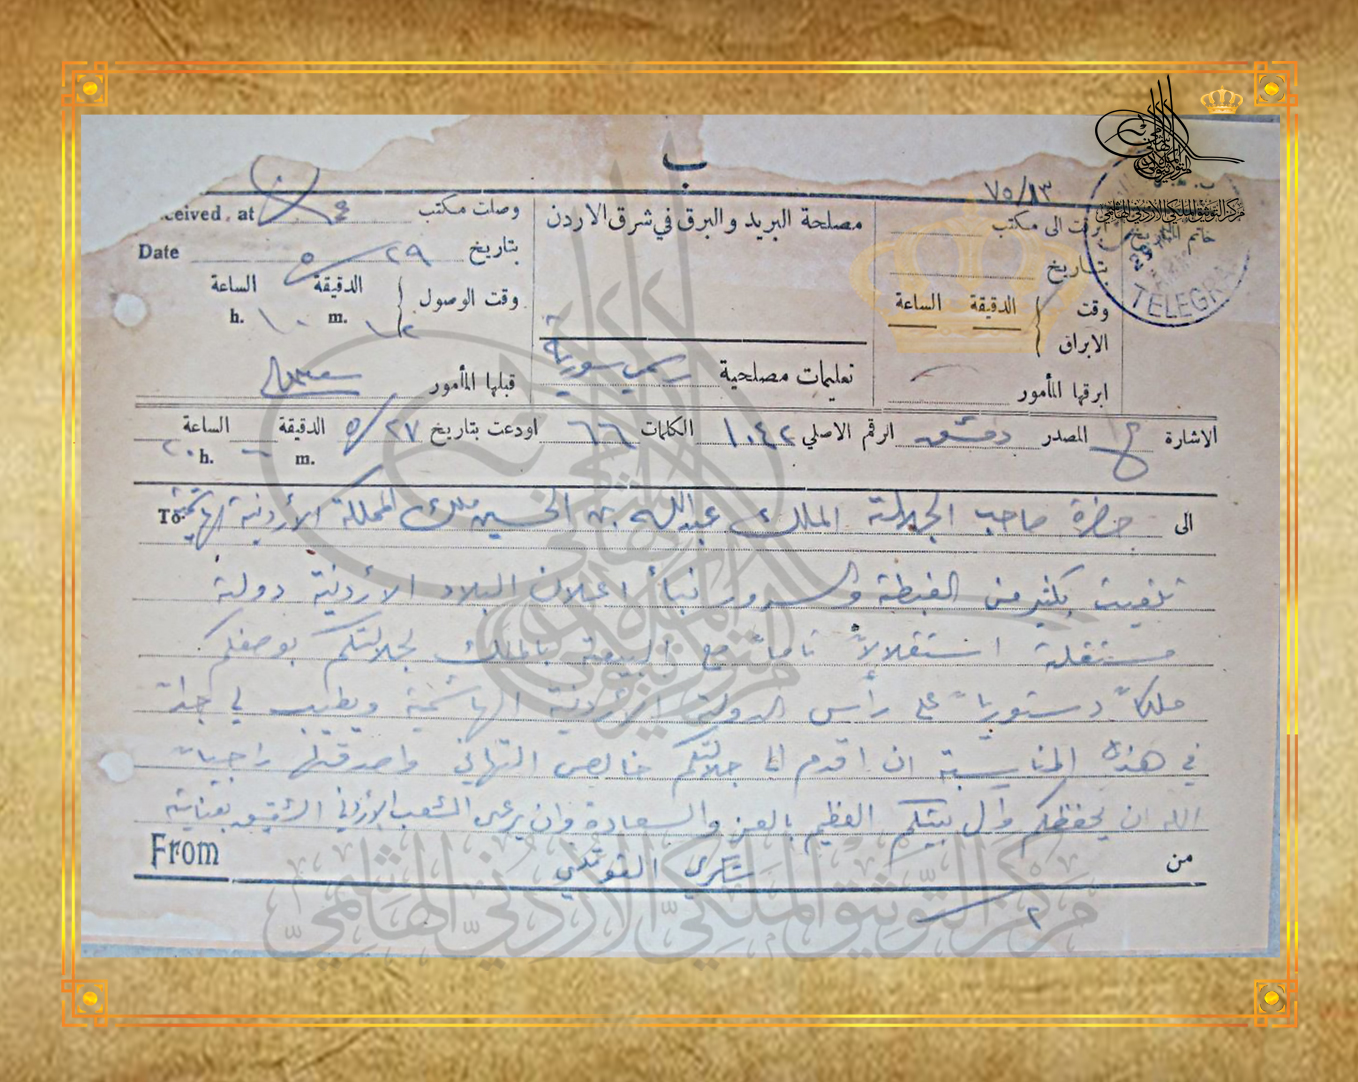 ب
٧٥/٨٣
مركز التوثيق الملكي الأردني الهاشمي
TELEGRA
خاتم التاريخ
ابرقت الى مكتب
بتاريخ
وقت الابراق
الدقيقة الساعة
ابرقها المأمور
مصلحة البريد والبرق في شرق الاردن
تعليمات مصلحية رسمي سورية
وصلت مكتب
ceived, at
بتاريخ ٢٩/٥ Date
وقت الوصول
الدقيقة الساعة
m. h.
قبلها المأمور
الاشارة المصدر دمشق الرقم الاصلي ١٠٤٢ الكلمات ٦٦ اودعت بتاريخ ٢٧/٥ الدقيقة الساعة
m. h. ٢٠
الى حضرة صاحب الجلالة الملك عبدالله بن الحسين ملك المملكة الأردنية الهاشمية To
تلقيت بكثير من الغبطة والسرور نبأ اعلان البلاد الأردنية دولة
مستقلة استقلالاً تاماً مع البيعة بالملك لجلالتكم بوصفكم
ملكاً دستورياً على رأس الدولة الأردنية الهاشمية ويطيب لي جداً
في هذه المناسبة ان اقدم الى جلالتكم خالص التهاني واصدقها راجياً
الله ان يحفظكم وآل بيتكم العظيم بالعز والسعادة وان يرعى الشعب الأردني الشقيق بعنايته
من شكري القوتلي From
٢
مركز التوثيق الملكي الأردني الهاشمي